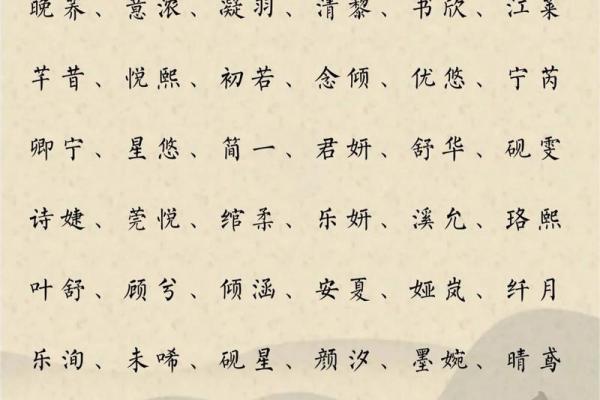 晚荞、意浓、凝羽、清黎、书欣、江莱
芊昔、悦熙、初若、念倾、优悠、宁芮
卿宁、星悠、简一、君妍、舒华、砚雯
诗婕、莞悦、绾柔、乐妍、溪允、珞熙
叶舒、顾兮、倾涵、安夏、娅岚、纤月
乐洵、未唏、砚星、颜汐、墨婉、晴鸢